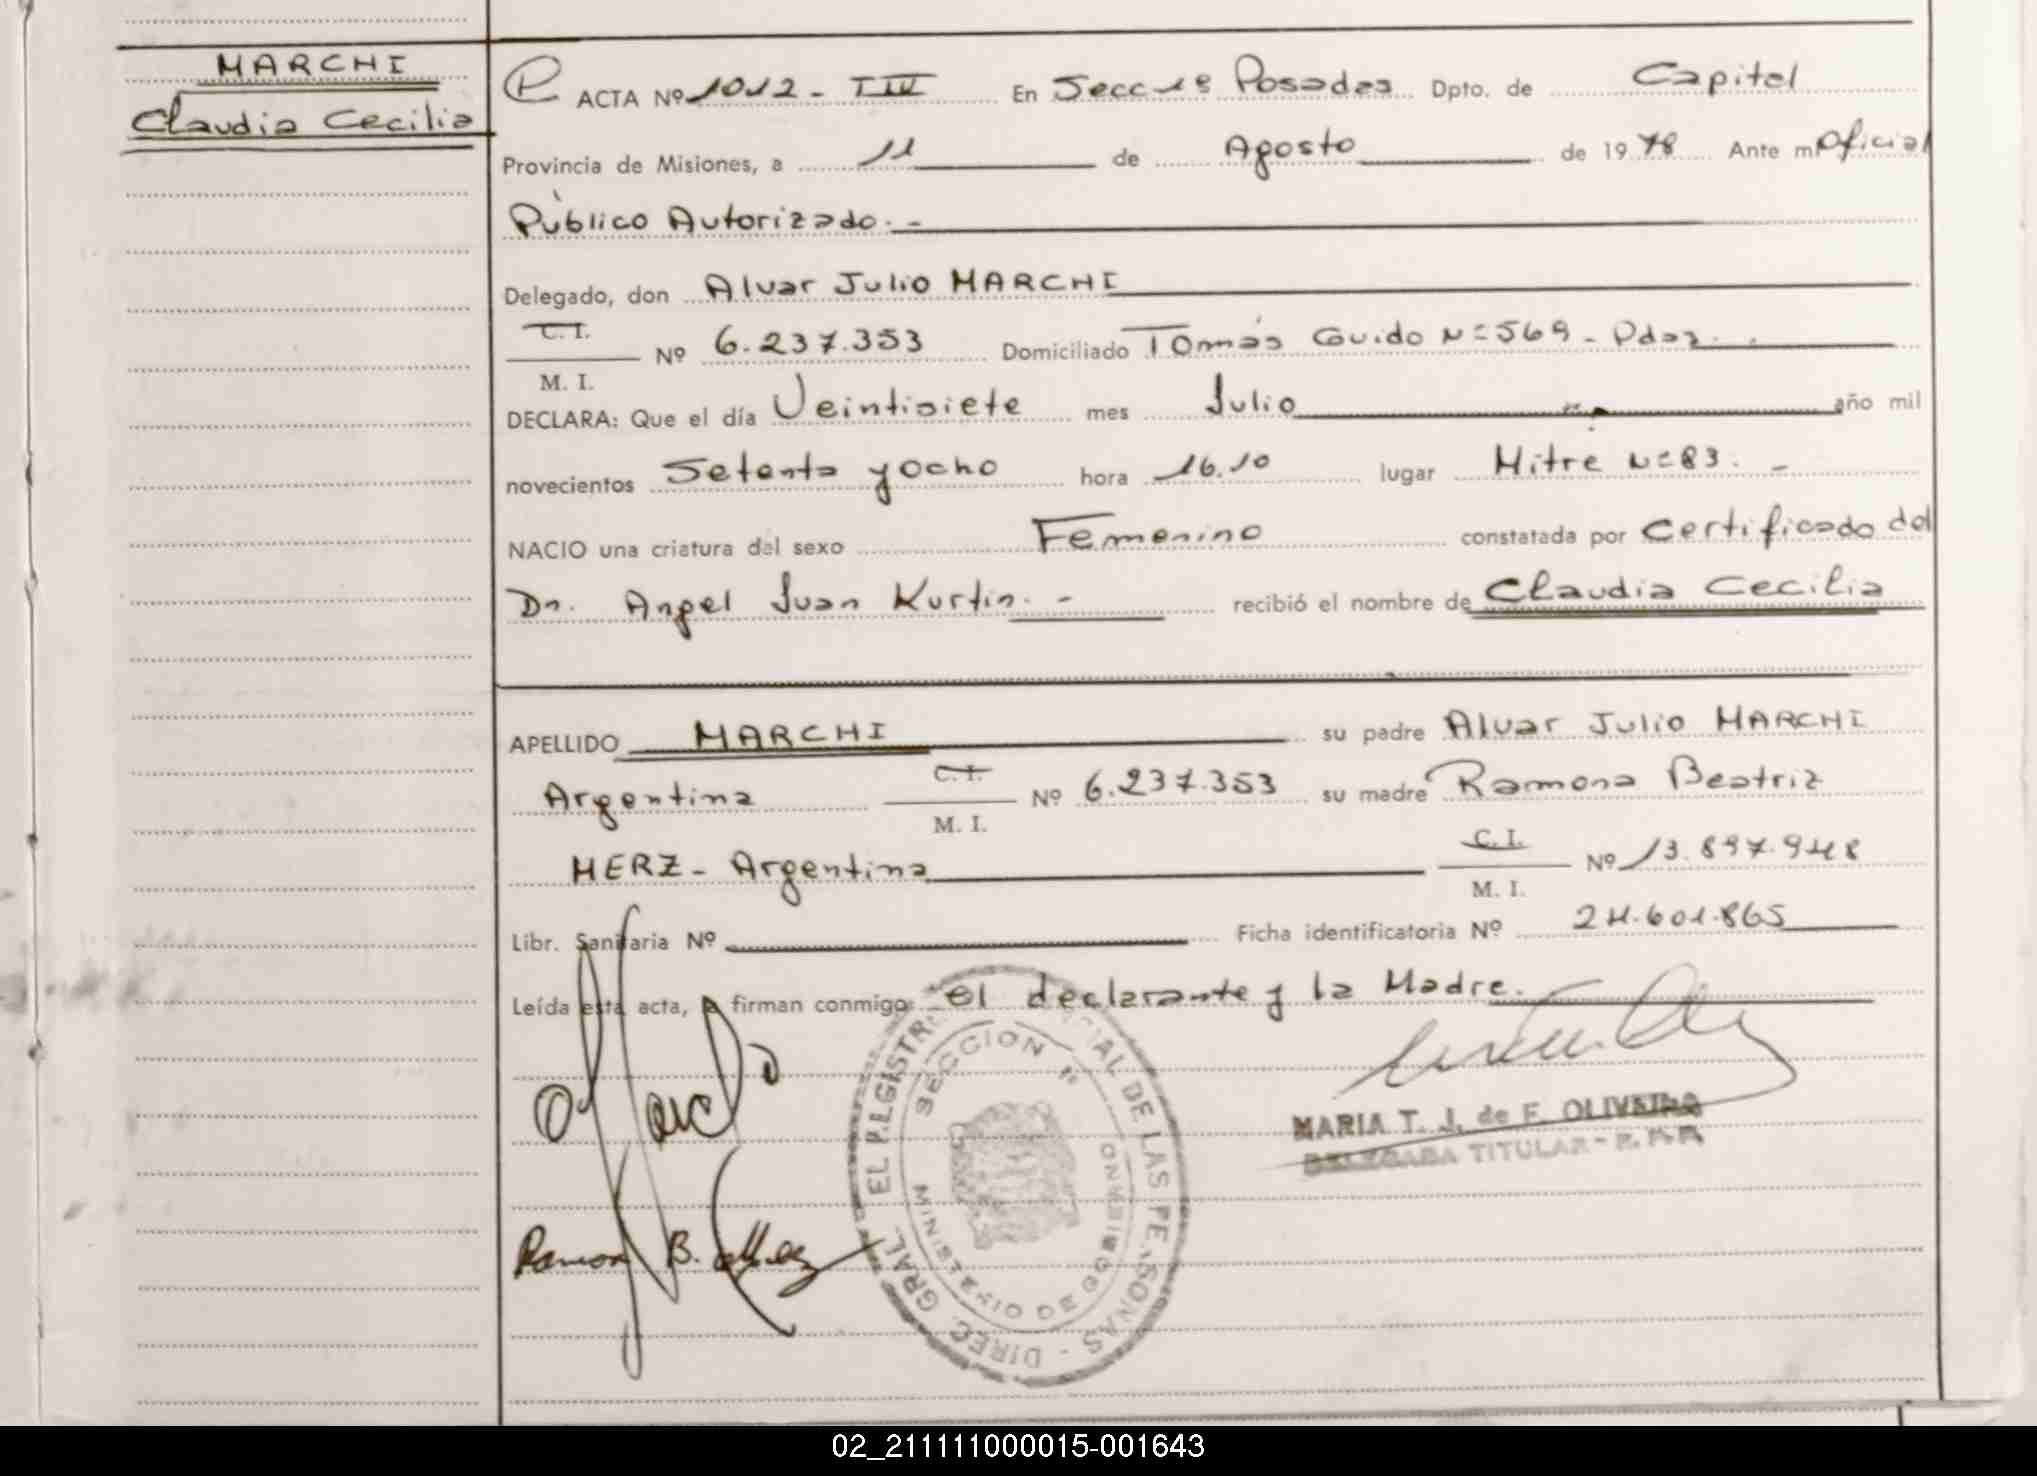 MARCHI
Claudia Cecilia
ACTA Nº 1012 - TIII En Secc 1º Posadas Dpto. de Capital
Provincia de Misiones, a 11 de Agosto de 1978 Ante mí Oficial
Público Autorizado. -
Delegado, don Alvar Julio MARCHI
C. I.
M. I.
Nº 6.237.353 Domiciliado Tomás Guido Nº 569 - Pdas.
DECLARA: Que el día Veintisiete mes Julio año mil
novecientos Setenta y ocho hora 16.10 lugar Mitre Nº 83. -
NACIO una criatura del sexo Femenino constatada por Certificado del
Dr. Angel Juan Kurtin. - recibió el nombre de Claudia Cecilia
APELLIDO MARCHI su padre Alvar Julio MARCHI
Argentina C. I. M. I. Nº 6.237.353 su madre Ramona Beatriz
MERZ - Argentina C. I. M. I. Nº 13.897.948
Libr. Sanitaria Nº Ficha identificatoria Nº 24.601.865
Leída esta acta, la firman conmigo: el declarante y la Madre.
SECCION 1º
MINISTERIO DE GOBIERNO
MARIA T. J. de F. OLIVEIRA
DELEGADA TITULAR - R. P. P.
Ramona B.
02_211111000015-001643